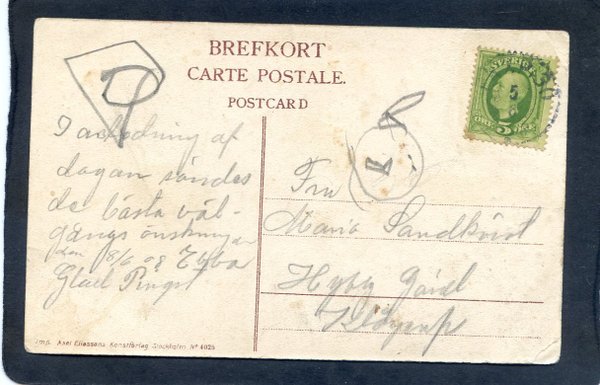 BREFKORT
CARTE POSTALE.
POSTCARD
SVERIGE
5
ÖRE 5 ÖRE
I anledning af
dagen sändes
de bästa väl-
gångs önskningar
den 8/6 08 Ebba
Glad Pingst
Fru
Maria Sandkvist
Hyby Gård
Klågerup
Imp. Axel Eliassons Konstförlag, Stockholm. Nº 4025